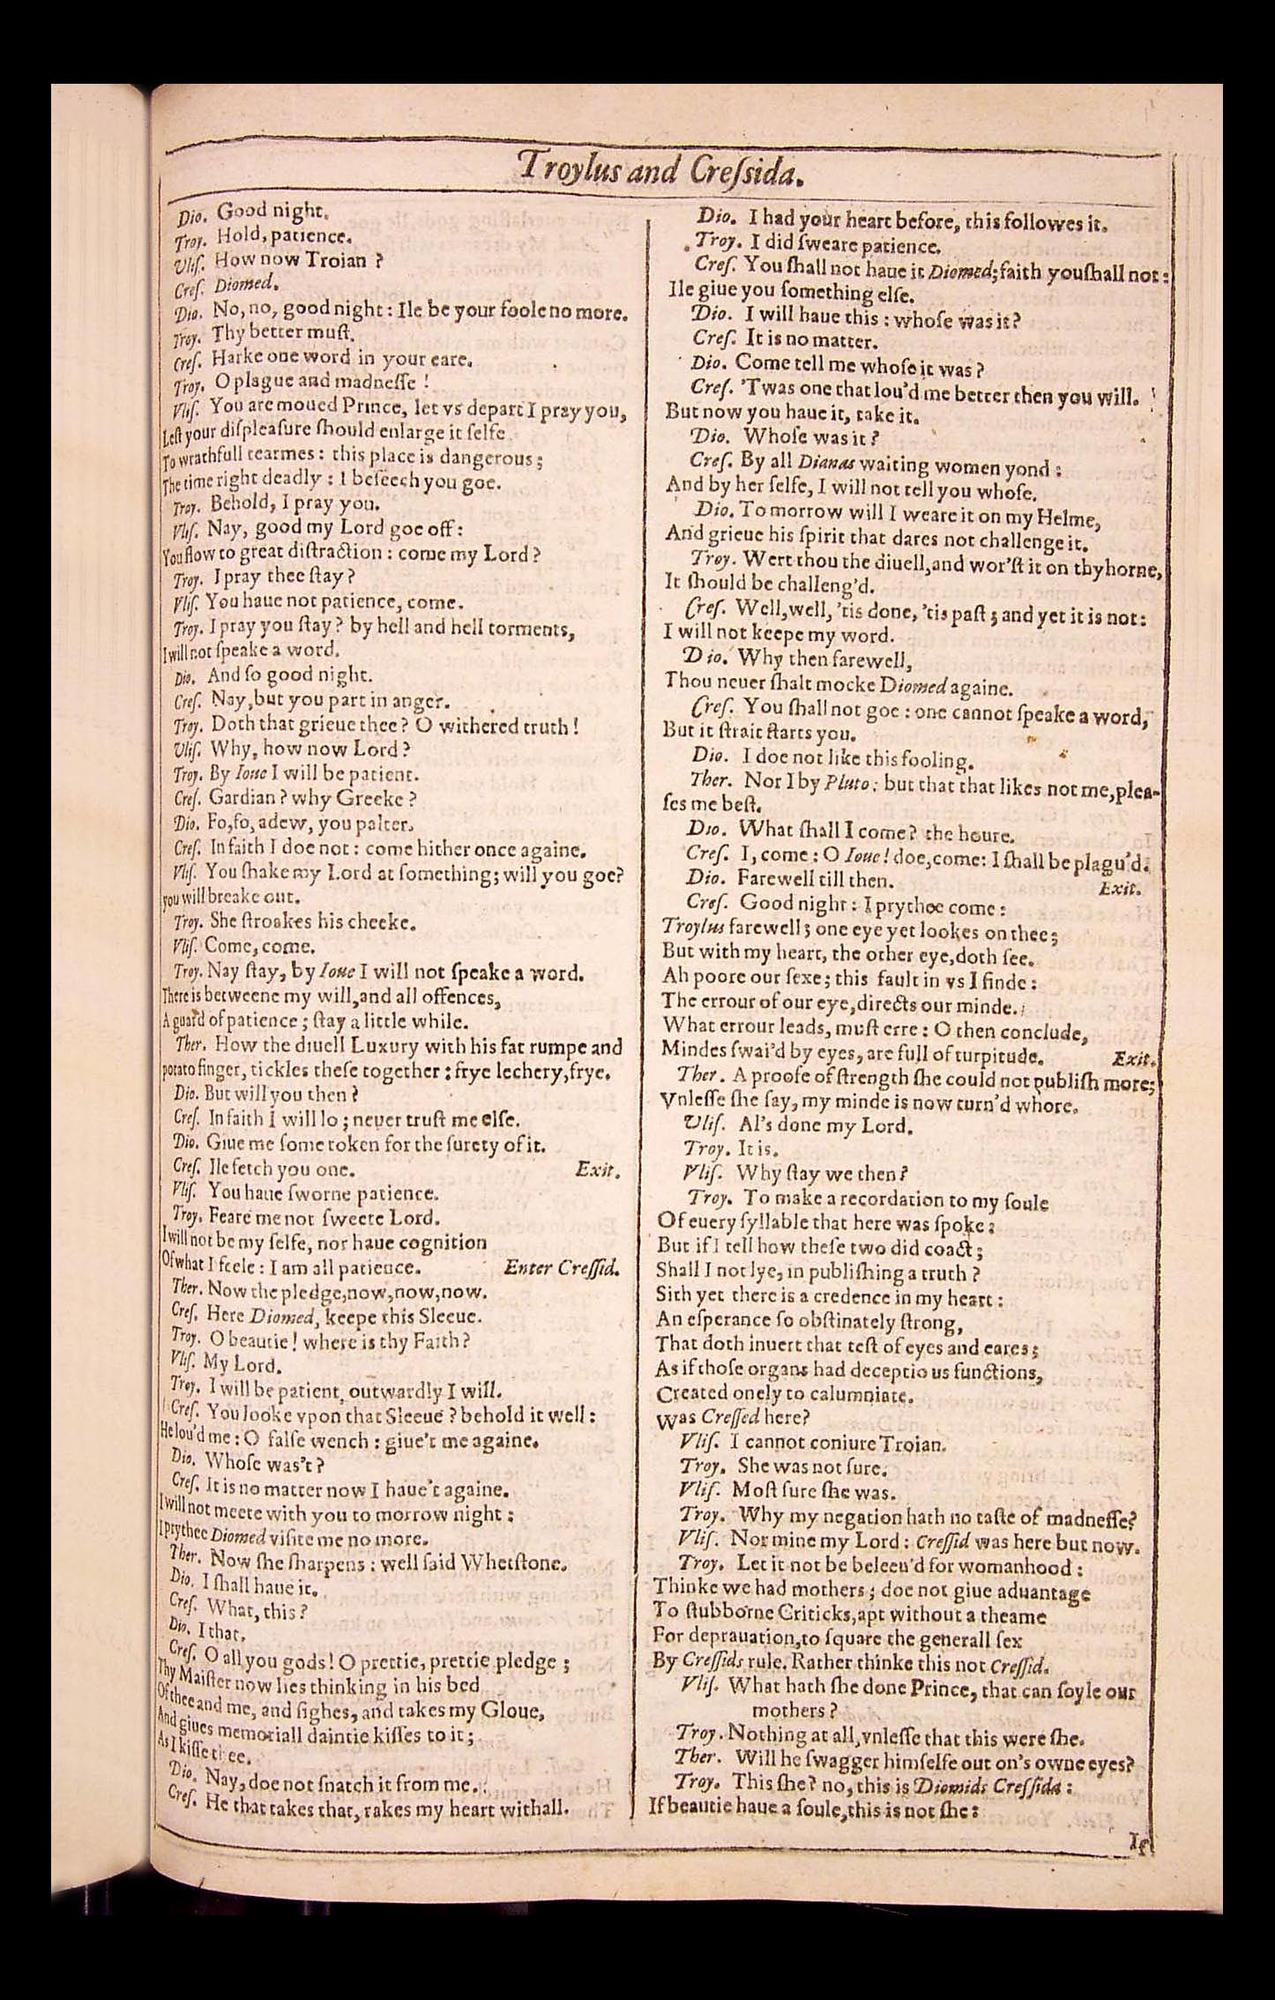 Troylus and Creſsida.
Dio. Good night.
Troy. Hold, patience.
Vliſ. How now Troian ?
Creſ. Diomed.
Dio. No, no, good night : Ile be your foole no more.
Troy. Thy better muſt.
Creſ. Harke one word in your eare.
Troy. O plague and madneſſe !
Vliſ. You are moued Prince, let vs depart I pray you,
Leſt your diſpleaſure ſhould enlarge it ſelfe
To wrathfull tearmes : this place is dangerous ;
The time right deadly : I beſeech you goe.
Troy. Behold, I pray you.
Vliſ. Nay, good my Lord goe off :
You flow to great diſtraction : come my Lord ?
Troy. I pray thee ſtay ?
Vliſ. You haue not patience, come.
Troy. I pray you ſtay ? by hell and hell torments,
I will not ſpeake a word.
Dio. And ſo good night.
Creſ. Nay, but you part in anger.
Troy. Doth that grieue thee ? O withered truth !
Vliſ. Why, how now Lord ?
Troy. By Ioue I will be patient.
Creſ. Gardian ? why Greeke ?
Dio. Fo, fo, adew, you palter.
Creſ. In faith I doe not : come hither once againe.
Vliſ. You ſhake my Lord at ſomething ; will you goe ?
you will breake out.
Troy. She ſtroakes his cheeke.
Vliſ. Come, come.
Troy. Nay ſtay, by Ioue I will not ſpeake a word.
There is betweene my will, and all offences,
A guard of patience ; ſtay a little while.
Ther. How the diuell Luxury with his fat rumpe and
potato finger, tickles theſe together : frye lechery, frye.
Dio. But will you then ?
Creſ. In faith I will lo ; neuer truſt me elſe.
Dio. Giue me ſome token for the ſurety of it.
Creſ. Ile fetch you one. Exit.
Vliſ. You haue ſworne patience.
Troy. Feare me not ſweete Lord.
I will not be my ſelfe, nor haue cognition
Of what I feele : I am all patience. Enter Creſſid.
Ther. Now the pledge, now, now, now.
Creſ. Here Diomed, keepe this Sleeue.
Troy. O beautie ! where is thy Faith ?
Vliſ. My Lord.
Troy. I will be patient, outwardly I will.
Creſ. You looke vpon that Sleeue ? behold it well :
He lou'd me : O falſe wench : giue't me againe.
Dio. Whoſe was't ?
Creſ. It is no matter now I haue't againe.
I will not meete with you to morrow night :
I prythee Diomed viſite me no more.
Ther. Now ſhe ſharpens : well ſaid Whetſtone.
Dio. I ſhall haue it.
Creſ. What, this ?
Dio. I that.
Creſ. O all you gods ! O prettie, prettie pledge ;
Thy Maiſter now lies thinking in his bed
Of thee and me, and ſighes, and takes my Gloue,
And giues memoriall daintie kiſſes to it ;
As I kiſſe thee.
Dio. Nay, doe not ſnatch it from me.
Creſ. He that takes that, rakes my heart withall.
Dio. I had your heart before, this followes it.
Troy. I did ſweare patience.
Creſ. You ſhall not haue it Diomed ; faith you ſhall not :
Ile giue you ſomething elſe.
Dio. I will haue this : whoſe was it ?
Creſ. It is no matter.
Dio. Come tell me whoſe it was ?
Creſ. 'Twas one that lou'd me better then you will.
But now you haue it, take it.
Dio. Whoſe was it ?
Creſ. By all Dianas waiting women yond :
And by her ſelfe, I will not tell you whoſe.
Dio. To morrow will I weare it on my Helme,
And grieue his ſpirit that dares not challenge it.
Troy. Wert thou the diuell, and wor'ſt it on thy horne,
It ſhould be challeng'd.
Creſ. Well, well, 'tis done, 'tis paſt ; and yet it is not :
I will not keepe my word.
Dio. Why then farewell,
Thou neuer ſhalt mocke Diomed againe.
Creſ. You ſhall not goe : one cannot ſpeake a word,
But it ſtrait ſtarts you.
Dio. I doe not like this fooling.
Ther. Nor I by Pluto : but that that likes not me, plea-
ſes me beſt.
Dio. What ſhall I come ? the houre.
Creſ. I, come : O Ioue ! doe, come : I ſhall be plagu'd.
Dio. Farewell till then. Exit.
Creſ. Good night : I prythee come :
Troylus farewell ; one eye yet lookes on thee ;
But with my heart, the other eye, doth ſee.
Ah poore our ſexe ; this fault in vs I finde :
The errour of our eye, directs our minde.
What errour leads, muſt erre : O then conclude,
Mindes ſwai'd by eyes, are full of turpitude. Exit.
Ther. A proofe of ſtrength ſhe could not publiſh more ;
Vnleſſe ſhe ſay, my minde is now turn'd whore.
Vliſ. Al's done my Lord.
Troy. It is.
Vliſ. Why ſtay we then ?
Troy. To make a recordation to my ſoule
Of euery ſyllable that here was ſpoke :
But if I tell how theſe two did coact ;
Shall I not lye, in publiſhing a truth ?
Sith yet there is a credence in my heart :
An eſperance ſo obſtinately ſtrong,
That doth inuert that teſt of eyes and eares ;
As if thoſe organs had deceptious functions,
Created onely to calumniate.
Was Creſſed here ?
Vliſ. I cannot coniure Troian.
Troy. She was not ſure.
Vliſ. Moſt ſure ſhe was.
Troy. Why my negation hath no taſte of madneſſe ?
Vliſ. Nor mine my Lord : Creſſid was here but now.
Troy. Let it not be beleeu'd for womanhood :
Thinke we had mothers ; doe not giue aduantage
To ſtubborne Criticks, apt without a theame
For deprauation, to ſquare the generall ſex
By Creſſids rule. Rather thinke this not Creſſid.
Vliſ. What hath ſhe done Prince, that can ſoyle our
mothers ?
Troy. Nothing at all, vnleſſe that this were ſhe.
Ther. Will he ſwagger himſelfe out on's owne eyes ?
Troy. This ſhe ? no, this is Diomids Creſſida :
If beautie haue a ſoule, this is not ſhe :
If